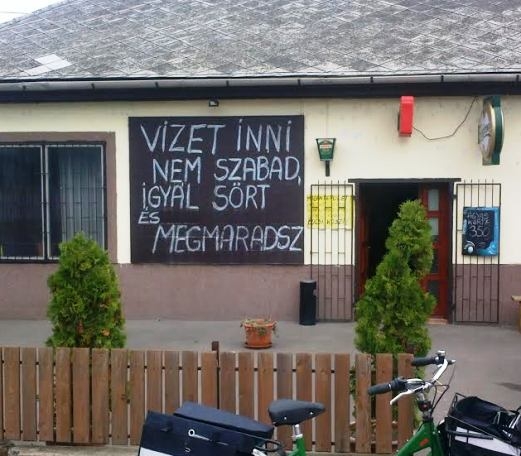 VIZET INNI
NEM SZABAD,
IGYÁL SÖRT
ÉS
MEGMARADSZ
ÁGYAS
KÖRTE
350